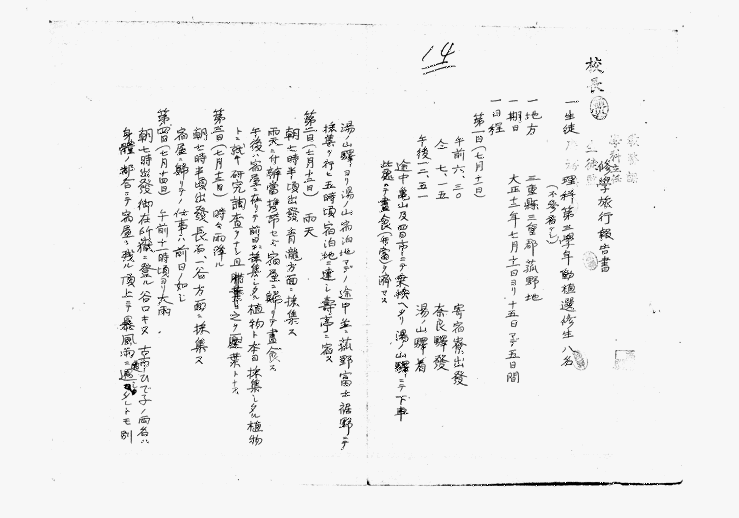 14
校長
修學旅行報告書
一生徒 理科第三學年動植選修生八名
(不參者ナシ)
一地方 三重縣三重郡菰野地
一期日 大正十一年七月十一日ヨリ十五日マデ五日間
一日程
第一日(七月十一日)
午前六、三〇 寄宿寮出發
仝 七、一五 奈良驛發
午後一、五一 湯ノ山驛着
途中亀山及四日市ニテ乗換ヘタリ 湯ノ山驛ニテ下車
此處ニテ晝食(弁當)ヲ濟マス
湯ノ山驛ヨリ湯ノ山宿泊地マデノ途中並ニ菰野富士裾野ニテ
採集ヲ行ヒ五時頃宿泊地ニ達シ壽亭ニ宿ス
第二日(七月十二日) 雨天
朝七時半頃出發青瀧方面ニ採集ス
雨天ニ付辨當携帯セズ宿屋ニ歸リテ晝食ス
午後ハ宿屋ニ在リテ前日採集シタル植物ト本日採集シタル植物
トニ就キ研究調査ヲナシ且腊葉トナス
第三日(七月十三日) 時々雨降ル
朝七時半頃出發長石、一ノ谷方面ニ採集ス
宿屋ニ歸リテノ仕事ハ前日ノ如シ
第四日(七月十四日) 午前十一時頃ヨリ大雨
朝七時出發御在所嶽ニ登ル 谷口キヌ 古市ひで子ノ両名ハ
身體ノ都合ニテ宿屋ニ残ル 頂上ニテ暴風雨ニ遇ヒタレトモ別